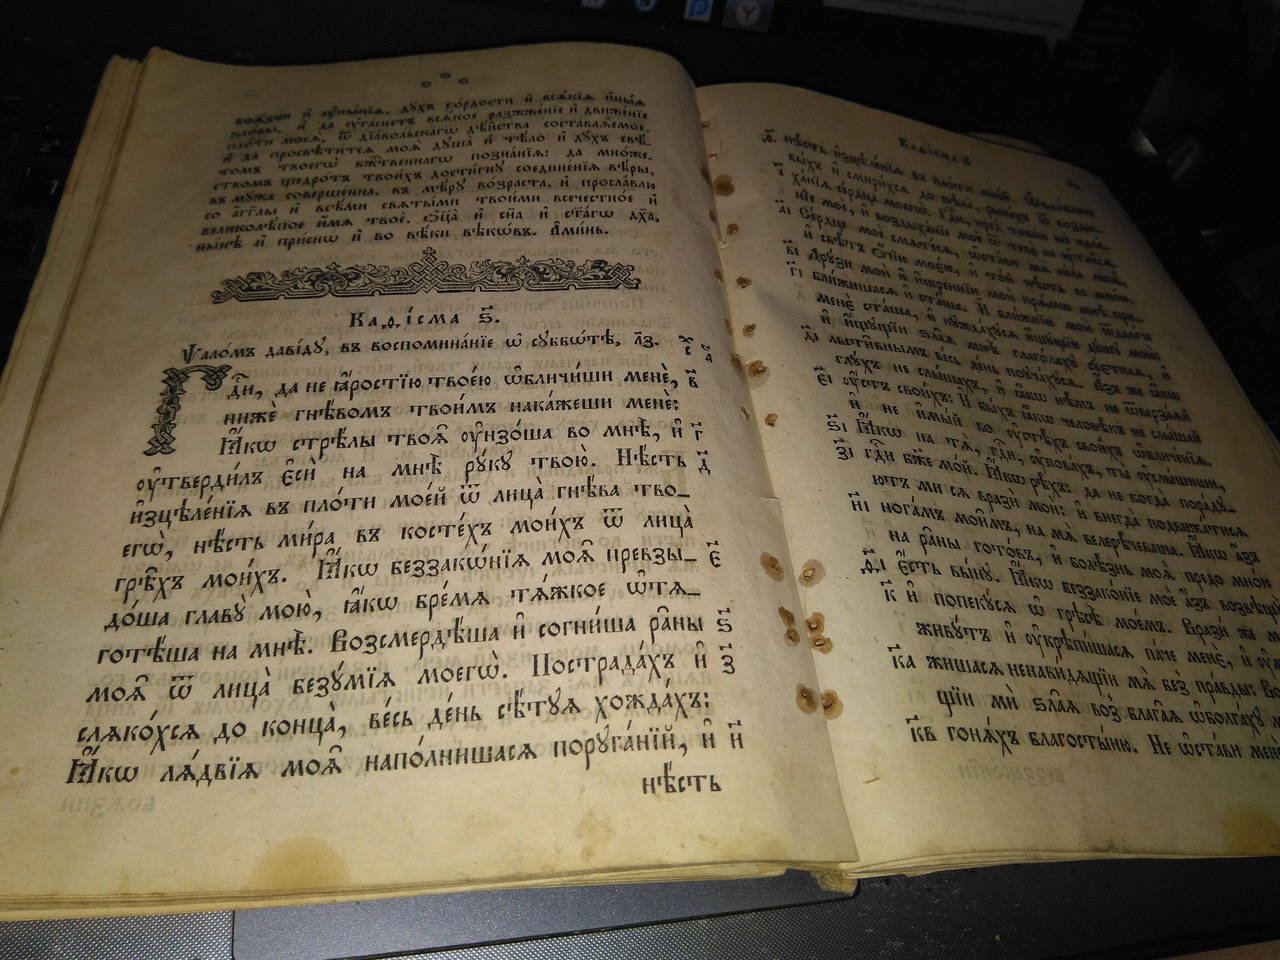 боѧ́зни и҆ ᲂу҆ны́нїѧ, дꙋ́хъ го́рдости и҆ всѧ́кїѧ и҆ны́ѧ
ѕло́бы, и҆ да ᲂу҆га́снетъ всѧ́кое разжже́нїе и҆ движе́нїе
пло́ти моеѧ̀, ѿ дїа́вольскагѡ дѣ́йства составлѧ́емое,
и҆ да просвѣти́тсѧ моѧ̀ дꙋша̀ и҆ тѣ́ло и҆ дꙋ́хъ свѣ́-
томъ твоегѡ̀ бж҃твеннагѡ позна́нїѧ: да мно́же-
ствомъ щедро́тъ твои́хъ дости́гнꙋ соедине́нїѧ вѣ́ры,
въ мꙋ́жа соверше́нна, въ мѣ́рꙋ во́зраста, и҆ просла́влю
со а҆́гг҃лы и҆ всѣ́ми свѧты́ми твои́ми всечестно́е и҆
великолѣ́пое и҆́мѧ твоѐ, ѻ҆ц҃а̀ и҆ сн҃а и҆ ст҃а́гѡ дх҃а,
ны́нѣ и҆ при́снѡ и҆ во вѣ́ки вѣкѡ́въ. А҆ми́нь.
Каѳі́сма ѕ҃.
Ѱало́мъ дави́дꙋ, въ воспомина́нїе ѡ҆ сꙋббѡ́тѣ, л҃з. ус҃ а҃
Гдⷭ҇и, да не ꙗ҆́ростїю твое́ю ѡ҆бличи́ши менѐ, в҃
нижѐ гнѣ́вомъ твои́мъ нака́жеши менѐ:
Ꙗ҆́кѡ стрѣ́лы твоѧ҄ ᲂу҆нзо́ша во мнѣ̀, и҆ г҃
ᲂу҆тверди́лъ є҆сѝ на мнѣ̀ рꙋ́кꙋ твою̀. Нѣ́сть д҃
и҆зцѣле́нїѧ въ пло́ти мое́й ѿ лица̀ гнѣ́ва тво-
егѡ̀, нѣ́сть ми́ра въ косте́хъ мои́хъ ѿ лица̀
грѣ҄хъ мои́хъ. Ꙗ҆́кѡ беззакѡ́нїѧ моѧ҄ превзы- є҃
до́ша главꙋ̀ мою̀, ꙗ҆́кѡ бре́мѧ тѧ́жкое ѡ҆тѧ-
готѣ́ша на мнѣ̀. Возсмердѣ́ша и҆ согни́ша ра҄ны ѕ҃
моѧ҄ ѿ лица̀ безꙋ́мїѧ моегѡ̀. Пострада́хъ и҆ з҃
слѧко́хсѧ до конца̀, ве́сь де́нь сѣ́тꙋѧ хожда́хъ:
Ꙗ҆́кѡ лѧ́двїѧ моѧ҄ напо́лнишасѧ порꙋга́нїй, и҆ и҃
нѣ́сть
Каѳі́сма ѕ҃
д҃. нѣ́сть и҆зцѣле́нїѧ въ пло́ти мое́й. Ѡ҆ѕло́бленъ
бы́хъ и҆ смири́хсѧ до ѕѣла̀, рыка́хъ ѿ возды-
і҃ ха́нїѧ се́рдца моегѡ̀. Гдⷭ҇и, пред̾ тобо́ю всѐ жела́-
нїе моѐ, и҆ воздыха́нїе моѐ ѿ тебє̀ не ᲂу҆таи́сѧ.
а҃і Се́рдце моѐ смѧте́сѧ, ѡ҆ста́ви мѧ̀ си́ла моѧ̀,
и҆ свѣ́тъ ѻ҆́чїю моє́ю, и҆ то́й нѣ́сть со мно́ю.
в҃і Дрꙋ́зи моѝ и҆ и҆́скреннїи моѝ прѧ́мѡ мнѣ̀ при-
г҃і бли́жишасѧ и҆ ста́ша. И҆ бли́жнїи моѝ ѿдале́че
менє̀ ста́ша, и҆ нꙋжда́хꙋсѧ и҆́щꙋщїи дꙋ́шꙋ мою̀:
и҆ и҆́щꙋщїи ѕла҄ѧ мнѣ̀ глаго́лахꙋ сꙋ́єтнаѧ, и҆
д҃і льсти҄внымъ ве́сь де́нь поꙋча́хꙋсѧ. А҆́зъ же ꙗ҆́кѡ
глꙋ́хъ не слы́шахъ, и҆ ꙗ҆́кѡ нѣ́мъ не ѿверза́ѧй
є҃і ᲂу҆́стъ свои́хъ: И҆ бы́хъ ꙗ҆́кѡ человѣ́къ не слы́шай
и҆ не и҆мы́й во ᲂу҆стѣ́хъ свои́хъ ѡ҆бличе́нїѧ.
ѕ҃і Ꙗ҆́кѡ на тѧ̀, гдⷭ҇и, ᲂу҆пова́хъ, ты̀ ᲂу҆слы́шиши,
з҃і гдⷭ҇и бж҃е мо́й. Ꙗ҆́кѡ рѣ́хъ: да не когда̀ пора́дꙋ-
ютъ ми сѧ вразѝ моѝ: и҆ внегда̀ подвижа́тисѧ
и҃і нога́мъ мои҄мъ, на мѧ̀ велерѣ́чеваша. Ꙗ҆́кѡ а҆́зъ
на ра҄ны гото́въ, и҆ болѣ́знь моѧ̀ предо мно́ю
ѳ҃і є҆́сть вы́нꙋ. Ꙗ҆́кѡ беззако́нїе моѐ а҆́зъ возвѣщꙋ̀
к҃ и҆ попекꙋ́сѧ ѡ҆ грѣсѣ̀ мое́мъ. Вразѝ же моѝ
живꙋ́тъ и҆ ᲂу҆крѣпи́шасѧ па́че менє̀, и҆
к҃а жишасѧ ненави́дѧщїи мѧ̀ без̾ пра́вды:
щїи мѝ ѕла҄ѧ воз̾ блага҄ѧ ѡ҆болга́хꙋ
к҃в гонѧ́хъ благосты́ню. Не ѡ҆ста́ви менѐ